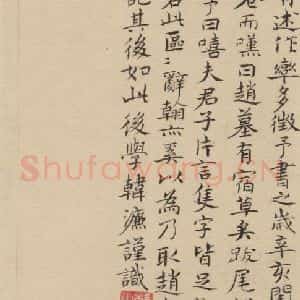 有述作率多徵予書之歲辛亥閏
卷而嘆曰趙墓有宿草矣跋尾
予曰嘻夫君子片言隻字皆足
若此區區辭翰亦奚以為乃取趙
記其後如此後學韓濂謹識
Shufawang.CN